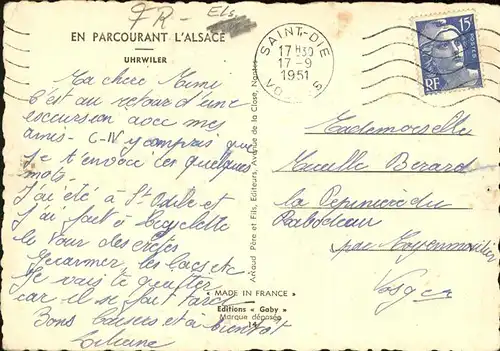 FR - Els.
EN PARCOURANT L'ALSACE
UHRWILER
SAINT-DIE
17 H30
17-9
1951
VOSGES
15F
RF
Ma chère Mimi
C'est au retour d'une
excursion avec mes
amis - C-IV y compris que
je t'envoie ces quelques
mots.
J'ai été à St Odile et
j'ai fait à bicyclette
le tour des crêtes
Gérarmer, les lacs etc
Je vais te quitter
car il se fait tard
Bons baisers et à bientôt
Liliane
Artaud Père et Fils, Editeurs, Avenue de la Close, Nantes
Mademoiselle
Mireille Berard
la Pépinière du
Rabodeau
par Moyenmoutier
Vosges
MADE IN FRANCE
Editions « Gaby »
Marque déposée
14